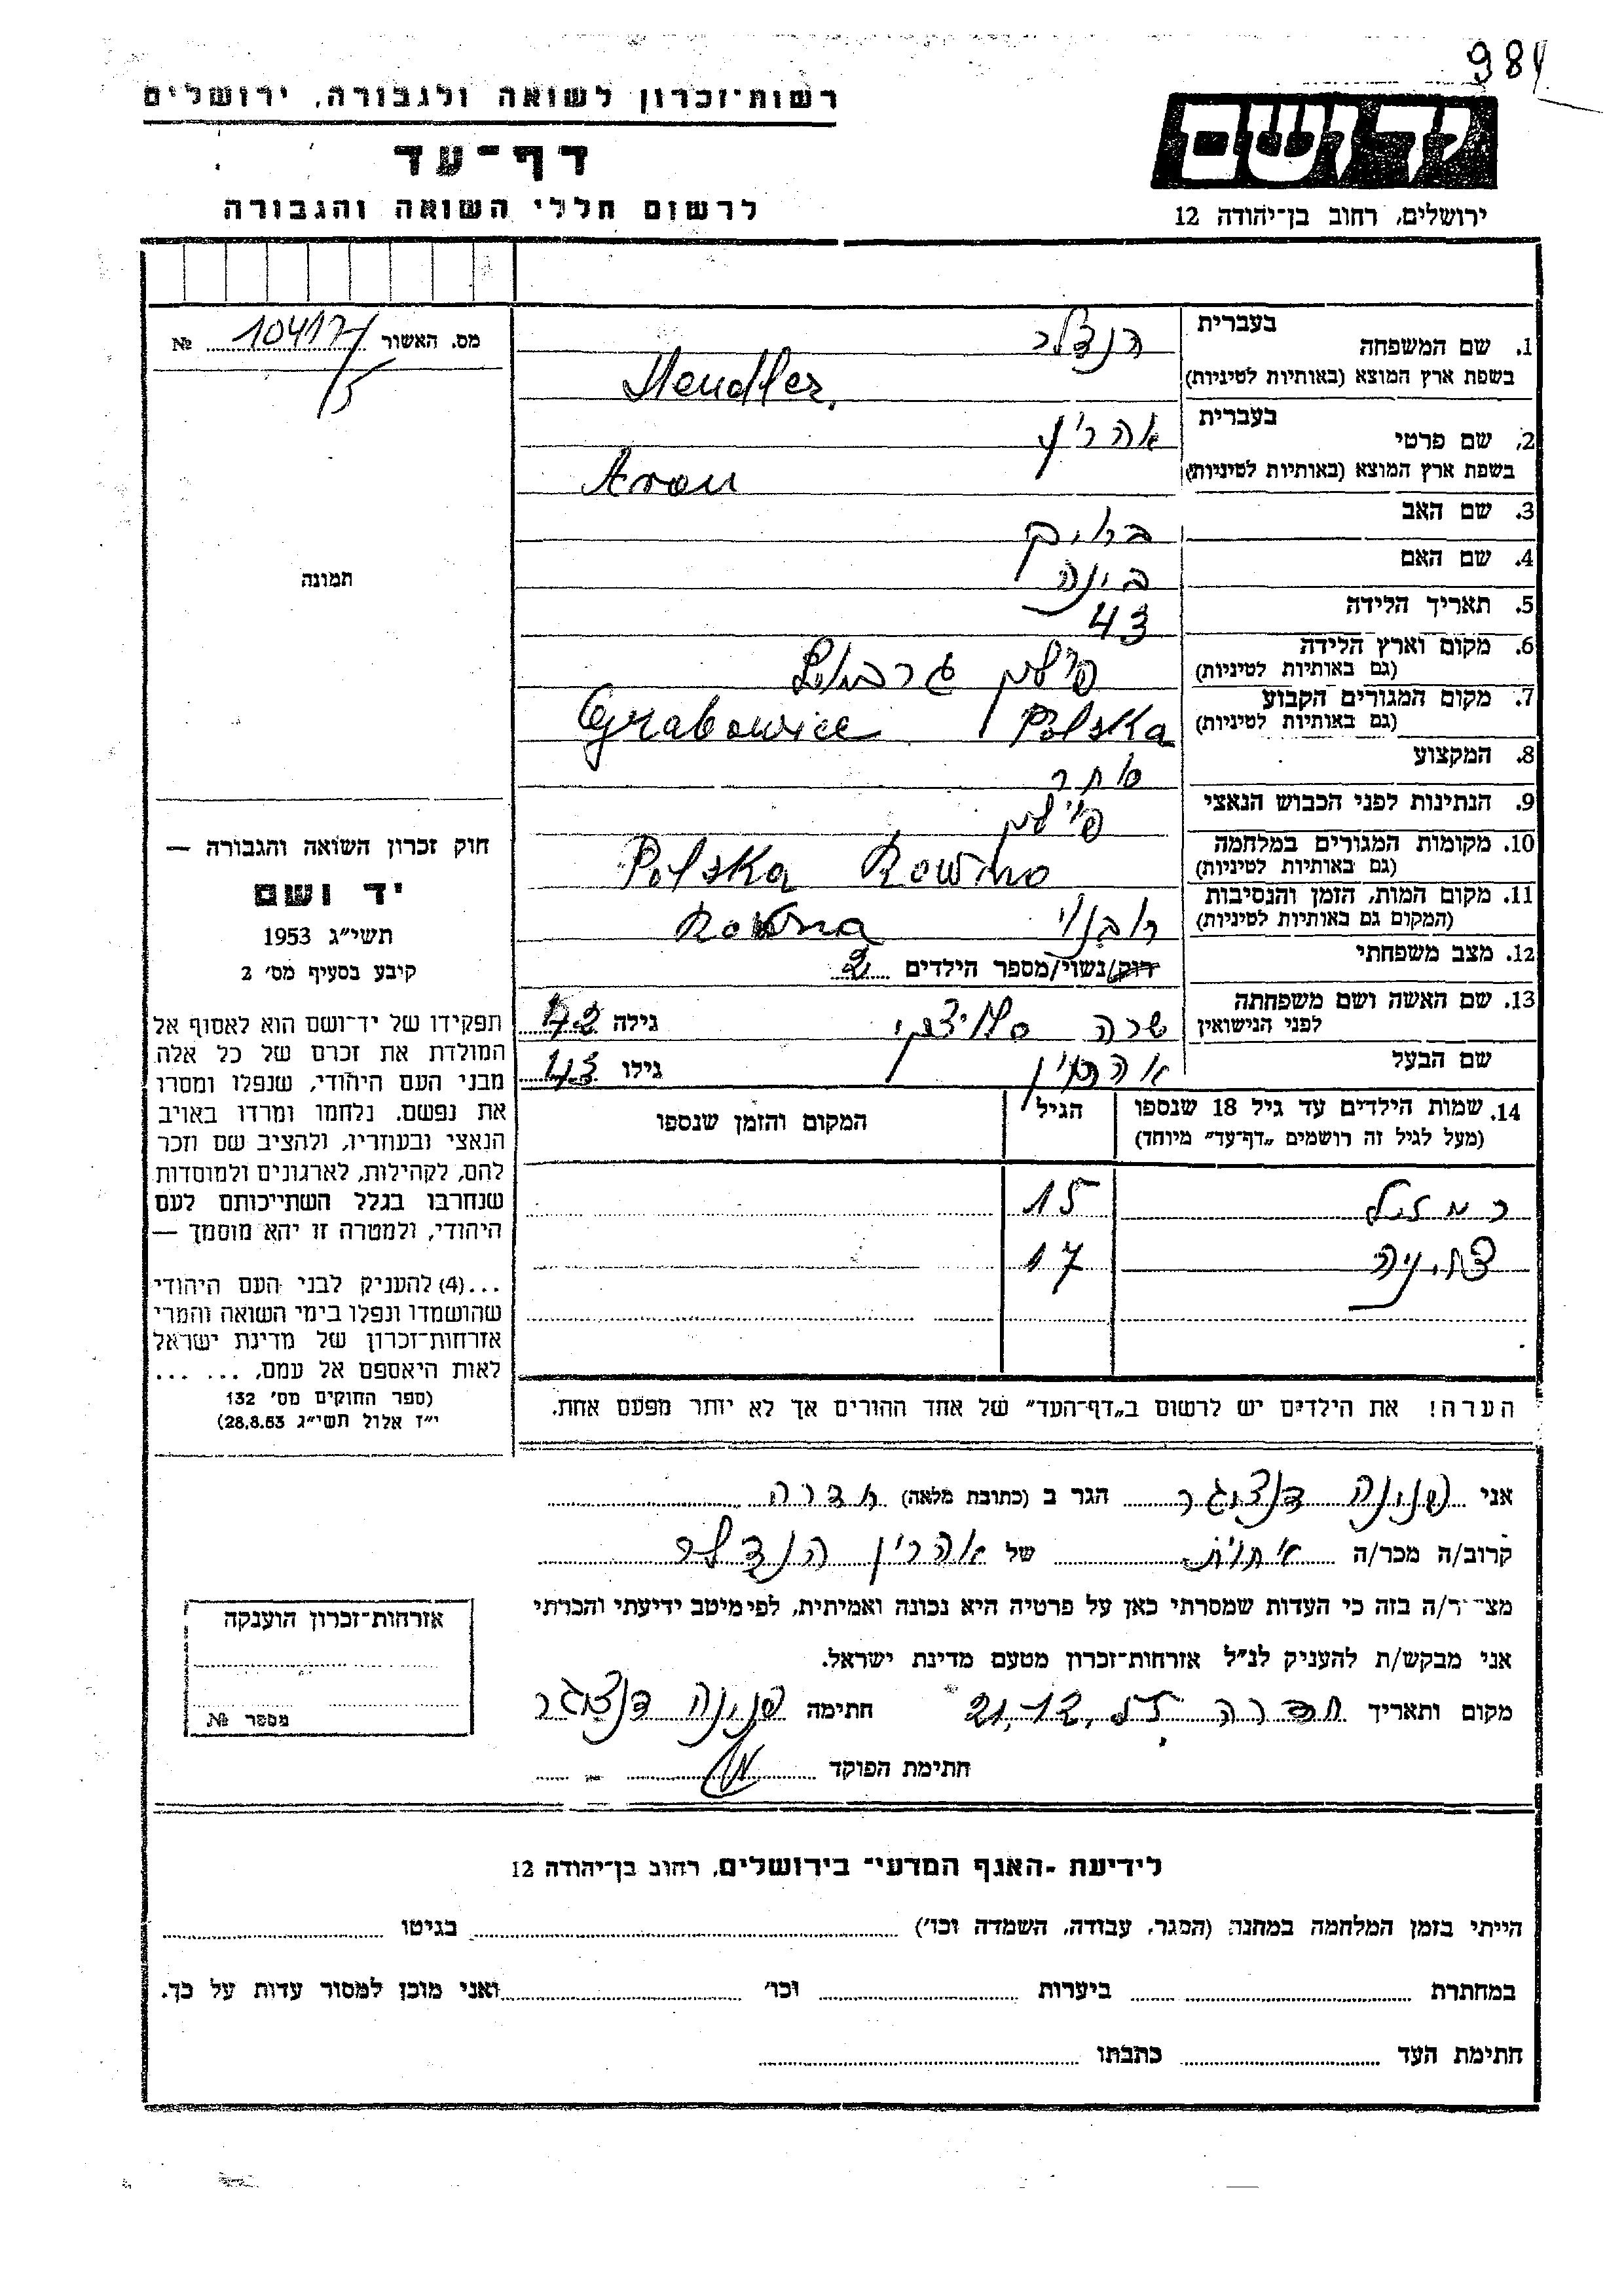 984
רשות־זכרון לשואה ולגבורה, ירושלים
דף־עד
לרשום חללי השואה והגבורה
ידושם
ירושלים, רחוב בן־יהודה 12
מס. האשור 10417/5 №
תמונה
חוק זכרון השואה והגבורה —
יד ושם
תשי״ג 1953
קיבע בסעיף מס׳ 2
תפקידו של יד־ושם הוא לאסוף אל
המולדת את זכרם של כל אלה
מבני העם היהודי, שנפלו ומסרו
את נפשם. נלחמו ומרדו באויב
הנאצי ובעוזריו, ולהציב שם וזכר
להם, לקהילות, לארגונים ולמוסדות
שנחרבו בגלל השתייכותם לעם
היהודי, ולמטרה זו יהא מוסמך —
...(4) להעניק לבני העם היהודי
שהושמדו ונפלו בימי השואה והמרי
אזרחות־זכרון של מדינת ישראל
לאות היאספם אל עמם, ... ...
(ספר החוקים מס׳ 132
י״ז אלול תשי״ג 28.8.53)
בעברית
1. שם המשפחה הנדלר
בשפת ארץ המוצא (באותיות לטיניות) Hendler
בעברית
2. שם פרטי אהרין
בשפת ארץ המוצא (באותיות לטיניות) Aron
3. שם האב
4. שם האם בינה
5. תאריך הלידה 43
6. מקום וארץ הלידה פולין
(גם באותיות לטיניות)
7. מקום המגורים הקבוע Polska Grabowice
(גם באותיות לטיניות)
8. המקצוע סוחר
9. הנתינות לפני הכבוש הנאצי פולין
10. מקומות המגורים במלחמה Polska Rowno
(גם באותיות לטיניות)
11. מקום המות, הזמן והנסיבות רובנו Rowna
(המקום גם באותיות לטיניות)
12. מצב משפחתי רוק/נשוי/מספר הילדים 2
13. שם האשה ושם משפחתה שרה גילה 42
לפני הנישואין
שם הבעל אהרון גילו 43
14. שמות הילדים עד גיל 18 שנספו הגיל המקום והזמן שנספו
(מעל לגיל זה רושמים „דף־עד״ מיוחד)
15
17
הערה! את הילדים יש לרשום ב„דף־העד״ של אחד ההורים אך לא יותר מפעם אחת.
אני פנינה דנציגר הגר ב (כתובת מלאה) חדרה
קרוב/ה מכר/ה אחות של אהרין הנדלר
מצהיר/ה בזה כי העדות שמסרתי כאן על פרטיה היא נכונה ואמיתית, לפי מיטב ידיעתי והכרתי
אני מבקש/ת להעניק לנ״ל אזרחות־זכרון מטעם מדינת ישראל.
מקום ותאריך חדרה 21.12 חתימה פנינה דנציגר
חתימת הפוקד
אזרחות־זכרון הוענקה
מספר №
לידיעת -האגף המדעי־ בירושלים, רחוב בן־יהודה 12
הייתי בזמן המלחמה במחנה (הסגר, עבודה, השמדה וכו׳) בגיטו
במחתרת ביערות וכו׳ ואני מוכן למסור עדות על כך.
חתימת העד כתבתו